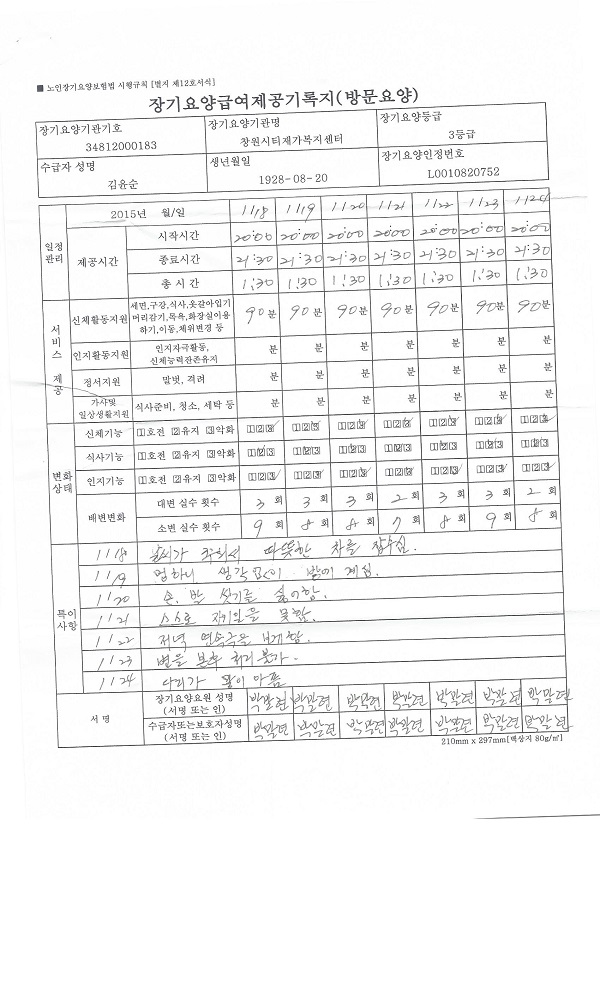 ■ 노인장기요양보험법 시행규칙 [별지 제12호서식]
장기요양급여제공기록지(방문요양)
장기요양기관기호 장기요양기관명 장기요양등급
34812000183 창원시티재가복지센터 3등급
수급자 성명 생년월일 장기요양인정번호
김윤순 1928-08-20 L0010820752
일정관리 2015년 월/일 11/18 11/19 11/20 11/21 11/22 11/23 11/24
제공시간 시작시간 20:00 20:00 20:00 20:00 20:00 20:00 20:00
종료시간 21:30 21:30 21:30 21:30 21:30 21:30 21:30
총 시 간 1:30 1:30 1:30 1:30 1:30 1:30 1:30
서비스 제공 신체활동지원 세면,구강,식사,옷갈아입기 머리감기,목욕,화장실이용하기,이동,체위변경 등 90분 90분 90분 90분 90분 90분 90분
인지활동지원 인지자극활동, 신체능력잔존유지 분 분 분 분 분 분 분
정서지원 말벗, 격려 분 분 분 분 분 분 분
가사및 일상생활지원 식사준비, 청소, 세탁 등 분 분 분 분 분 분 분
변화상태 신체기능 1호전 2유지 3악화 123 123 123 123 123 123 123
식사기능 1호전 2유지 3악화 123 123 123 123 123 123 123
인지기능 1호전 2유지 3악화 123 123 123 123 123 123 123
배변변화 대변 실수 횟수 3 회 3 회 3 회 2 회 3 회 3 회 2 회
소변 실수 횟수 9 회 8 회 8 회 7 회 8 회 9 회 8 회
특이사항
11/18 날씨가 추워서 따뜻한 차를 잡수심.
11/19 멍하니 생각없이 계심.
11/20 손, 발 씻기를 싫어함.
11/21 스스로 자기일을 못함.
11/22 저녁 연속극은 보게함.
11/23 변을 본후 처리 불가.
11/24 다리가 많이 아픔
서 명 장기요양요원 성명 (서명 또는 인) 박말련 박말련 박말련 박말련 박말련 박말련 박말련
수급자또는보호자성명 (서명 또는 인) 박말련 박말련 박말련 박말련 박말련 박말련 박말련
210mm x 297mm[백상지 80g/㎡]